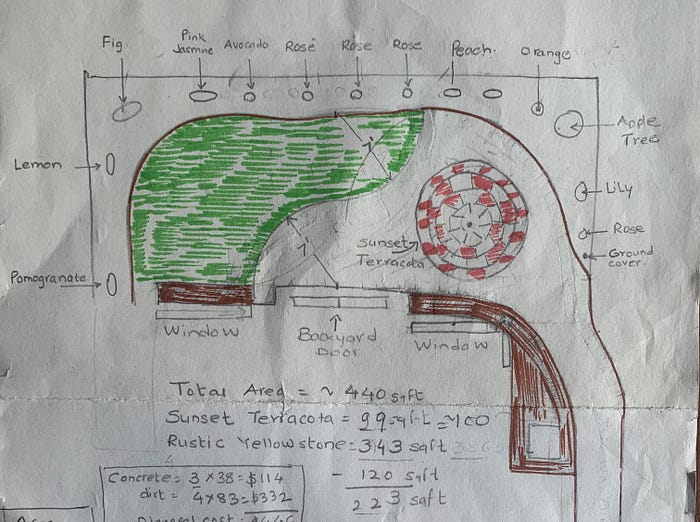 Fig.
Pink Jasmine
Avocado
Rose
Rose
Rose
Peach.
Orange
Apple Tree
Lemon
LiLy
Rose
Ground cover.
Pomogranate
7'
7'
Sunset Terracota
Window
Backyard Door
Window
Total Area = ~ 440 sqft
Sunset Terracota = 99 sqft ≈ 100
Rustic Yellow stone = 343 sqft
- 120 sqft
223 sqft
Concrete = 3 x 38 = $114
dirt = 4 x 83 = $332